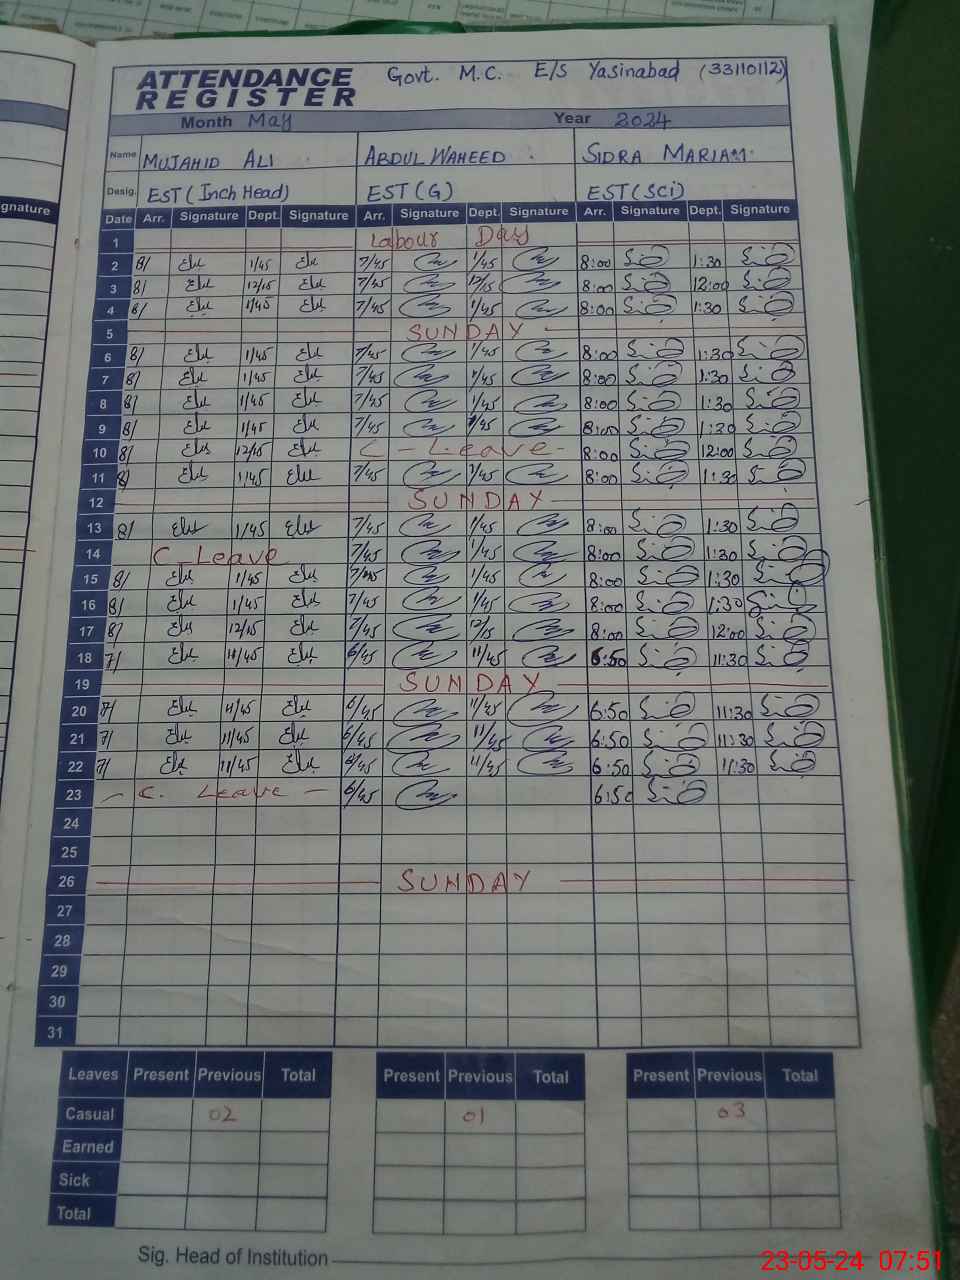 ATTENDANCE REGISTER Govt. M.C. E/S Yasinabad (33110112)
Month May Year 2024
Name MUJAHID ALI ABDUL WAHEED SIDRA MARIAM
Desig. EST (Inch Head) EST (G) EST (Sci)
gnature
Date Arr. Signature Dept. Signature Arr. Signature Dept. Signature Arr. Signature Dept. Signature
1 Labour Day
2 8/ 1/45 7/45 1/45 8:00 1:30
3 8/ 12/15 7/45 12/15 8:00 12:00
4 8/ 1/45 7/45 1/45 8:00 1:30
5 SUNDAY
6 8/ 1/45 7/45 1/45 8:00 1:30
7 8/ 1/45 7/45 1/45 8:00 1:30
8 8/ 1/45 7/45 1/45 8:00 1:30
9 8/ 1/45 7/45 1/45 8:00 1:30
10 8/ 12/15 C - Leave - 8:00 12:00
11 8/ 1/45 7/45 1/45 8:00 1:30
12 SUNDAY
13 8/ 1/45 7/45 1/45 8:00 1:30
14 C Leave 7/45 1/45 8:00 1:30
15 8/ 1/45 1/45 8:00 1:30
16 8/ 1/45 7/45 1/45 8:00 1:30
17 8/ 12/15 7/45 12/15 8:00 12:00
18 7/ 11/45 6/45 11/45 6:50 11:30
19 SUNDAY
20 7/ 11/45 6/45 11/45 6:50 11:30
21 7/ 11/45 6/45 11/45 6:50 11:30
22 7/ 11/45 6/45 11/45 6:50 11:30
23 - C. Leave - 6/45 6:50
24
25
26 SUNDAY
27
28
29
30
31
Leaves Present Previous Total Present Previous Total Present Previous Total
Casual 02 01 03
Earned
Sick
Total
Sig. Head of Institution
23-05-24 07:51